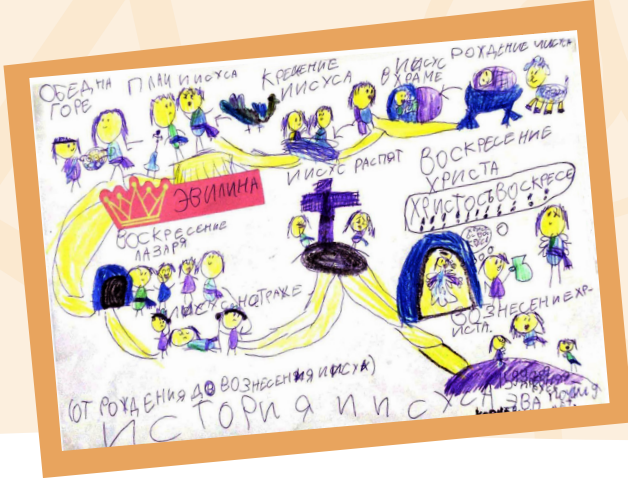 ОБЕД НА
ГОРЕ
ПЛАН ИИСУСА
КРЕЩЕНИЕ
ИИСУСА
ИИСУС
В ХРАМЕ
РОЖДЕНИЕ
ЭВИЛИНА
ИИСУС РАСПЯТ
ВОСКРЕСЕНИЕ
ХРИСТА
ХРИСТОСЪВОСКРЕСЕ
ВОСКРЕСЕНИЕ
ЛАЗАРЯ
ВОЗНЕСЕНИЕ ХР-
ИСТА.
(ОТ РОЖДЕНИЯ ДО ВОЗНЕСЕНИЯ ИИСУСА)
ИСТОРИЯ ИИСУСА
ЭВА